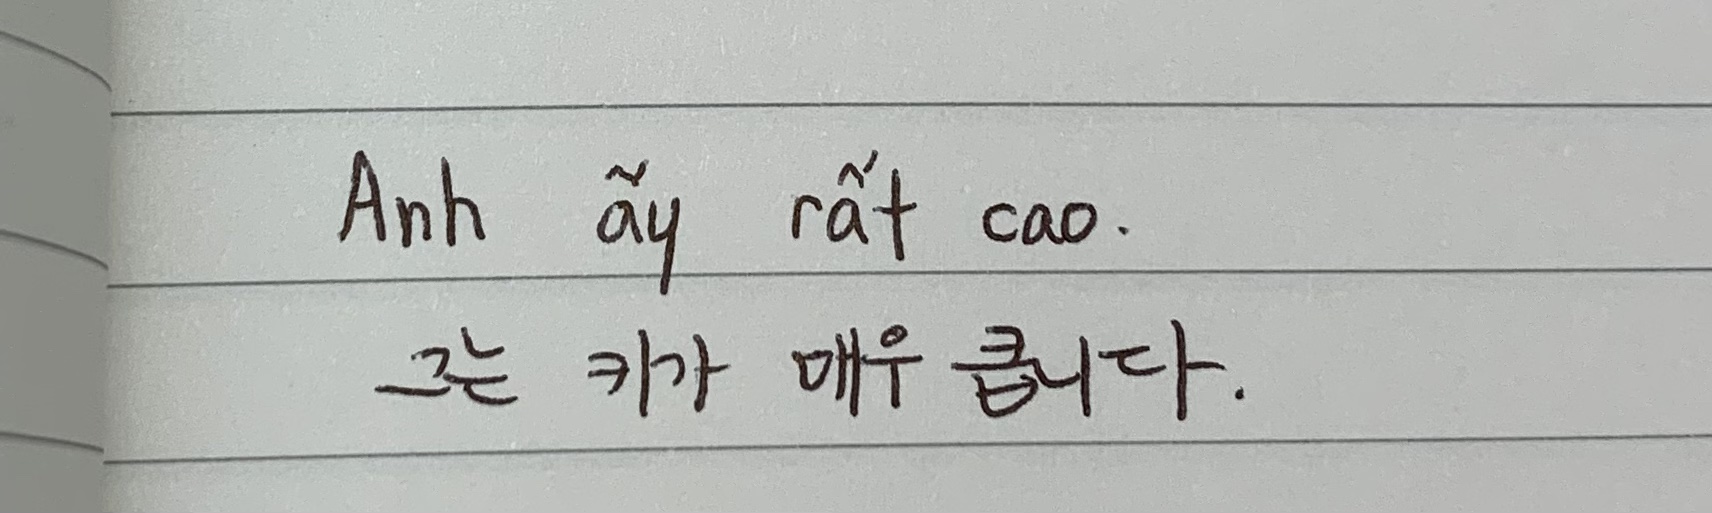 Anh ấy rất cao.
그는 키가 매우 큽니다.